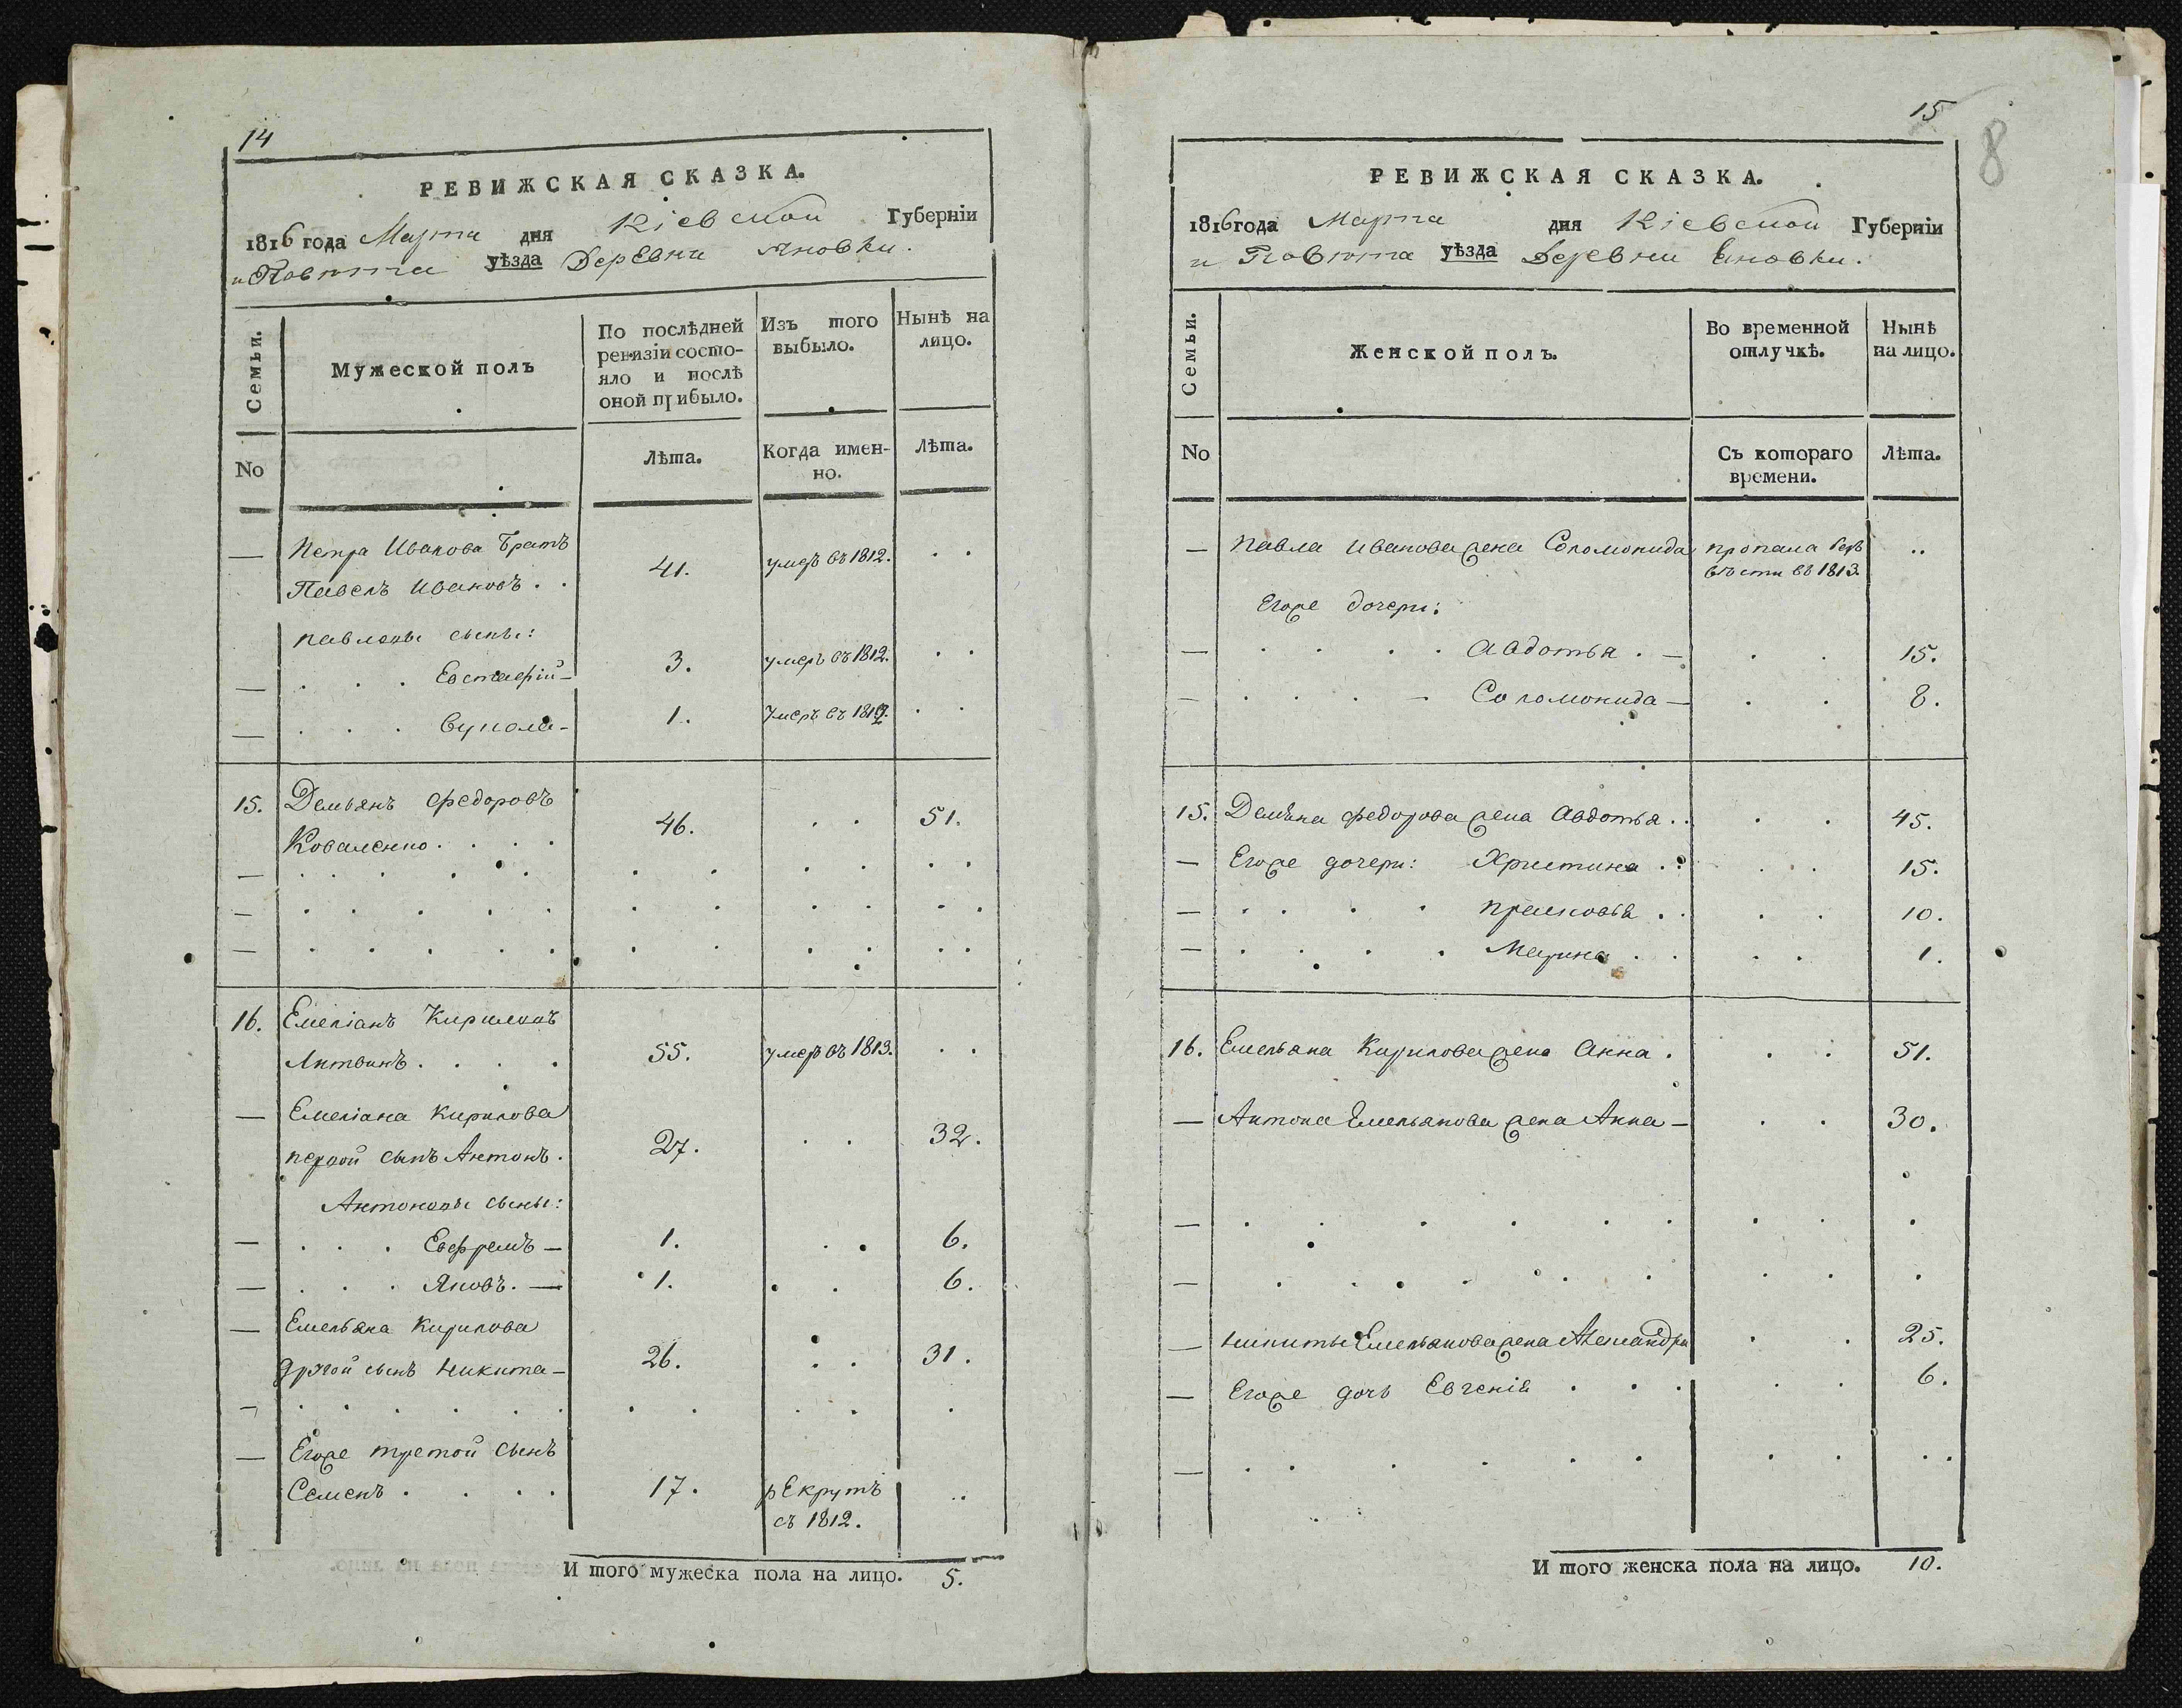 14
РЕВИЖСКАЯ СКАЗКА.
1816 года Марта дня Кіевской Губерніи
и Повѣта уѣзда Деревни Яновки.
Семьи.
Мужеской полъ
По послѣдней ревизіи состояло и послѣ оной прибыло.
Изъ того выбыло.
Нынѣ на лицо.
No
Лѣта.
Когда именно.
Лѣта.
— Петра Иванова братъ
Павелъ Ивановъ . . 41. умеръ въ 1812. . .
Павловы сыны:
— . . . Евстафій — 3. умеръ въ 1812. . .
— . . . Вукола — 1. умеръ въ 1812. . .
15. Демьянъ Федоровъ
Коваленко . . . . 46. . . 51.
— . . . . . . . . . . . .
— . . . . . . . . . . .
— . . . . . . . . . . .
16. Емеліанъ Кириловъ
Литвинъ . . . . 55. умеръ въ 1813. . .
— Емеліана Кирилова
первой сынъ Антонъ. 27. . . 32.
Антоновы сыны:
— . . . Евфремъ — 1. . . 6.
— . . . Яковъ. — 1. . . 6.
— Емельяна Кирилова
другой сынъ Никита — 26. . . 31.
— . . . . . . . . . . .
— Егоже третой сынъ
Семенъ . . . . 17. рекрутъ ..
съ 1812.
И того мужеска пола на лицо. 5.
15
8
РЕВИЖСКАЯ СКАЗКА.
1816 года Марта дня Кіевской Губерніи
и Повѣта уѣзда Деревни Яновки.
Семьи.
Женской полъ.
Во временной отлучкѣ.
Нынѣ на лицо.
No
Съ котораго времени.
Лѣта.
— Павла Иванова жена Соломонида пропала безъ ..
вѣсти въ 1813.
Егоже дочери:
— . . . . Авдотья . — . . 15.
— . . . — Соломонида — . . 8.
15. Демьяна Федорова жена Авдотья . . . . 45.
— Егоже дочери: Христина . . . . 15.
— . . . . Прасковья . . . . 10.
— . . . . Марина . . . . 1.
16. Емельяна Кирилова жена Анна . . . 51.
— Антона Емельянова жена Анна — . . 30.
— . . . . . . . . .
— . . . . . . . . .
— Никиты Емельянова жена Александра . . 25.
— Егоже дочь Евгенія . . . . . 6.
— . . . . . . . . . .
И того женска пола на лицо. 10.